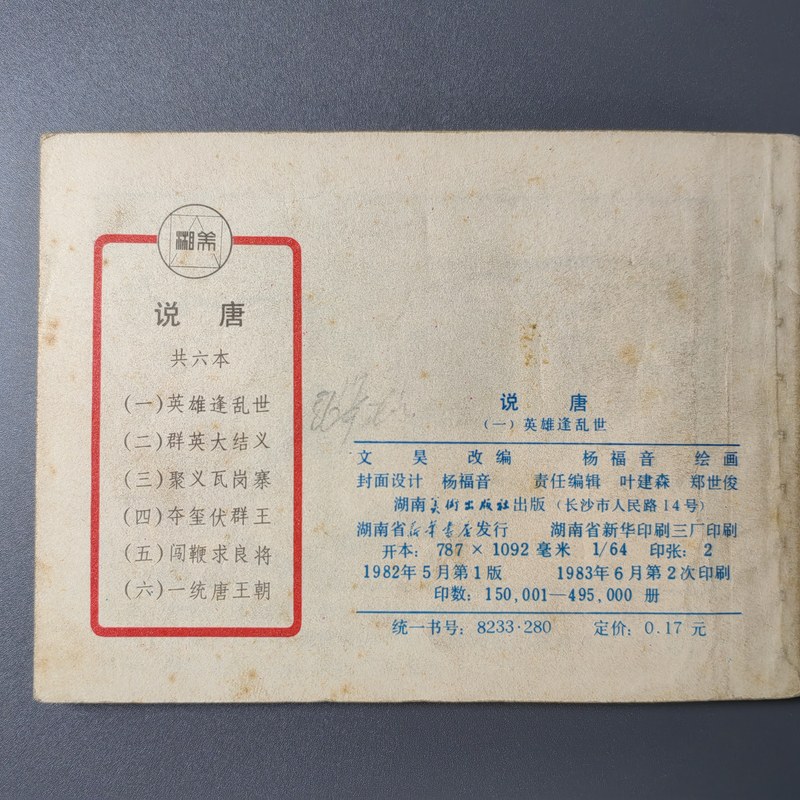 湘美
说 唐
共六本
(一)英雄逢乱世
(二)群英大结义
(三)聚义瓦岗寨
(四)夺玺伏群王
(五)闯鞭求良将
(六)一统唐王朝
说 唐
(一) 英雄逢乱世
文 昊 改编 杨福音 绘画
封面设计 杨福音 责任编辑 叶建森 郑世俊
湖南美术出版社出版 (长沙市人民路14号)
湖南省新华书店发行 湖南省新华印刷三厂印刷
开本: 787 × 1092 毫米 1/64 印张: 2
1982年5月第1版 1983年6月第2次印刷
印数: 150,001—495,000 册
统一书号: 8233·280 定价: 0.17 元